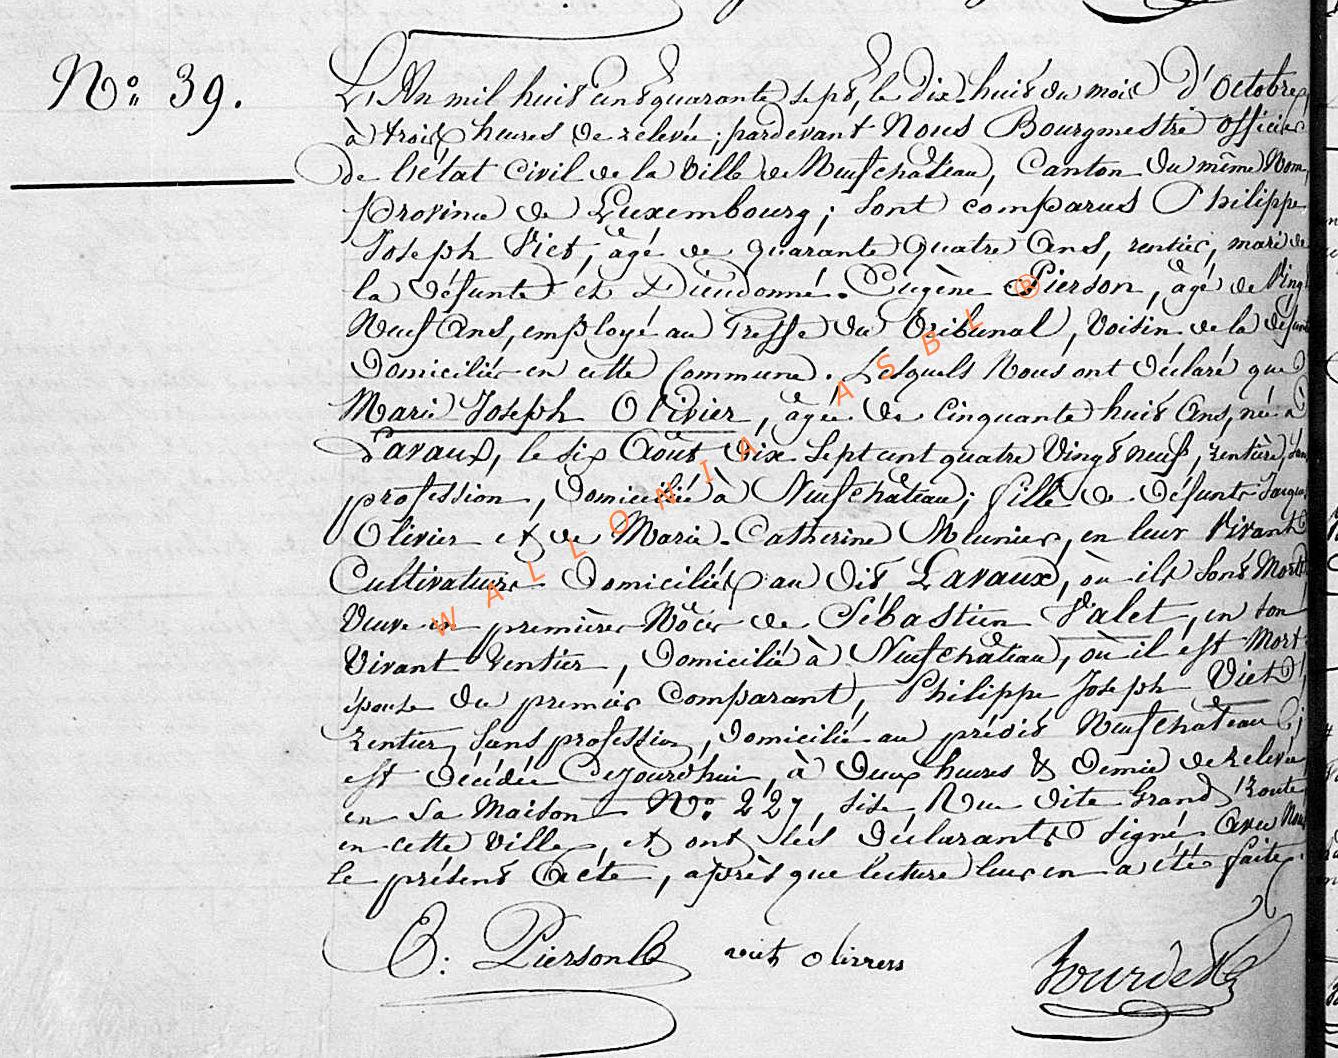 N.° 39.
L'An mil huit cent quarante sept, le dix-huit du mois d'Octobre,
à trois heures de relevée ; pardevant Nous Bourgmestre officier
de l'état Civil de la Ville de Neufchâteau, Canton du même Nom,
province de Luxembourg ; sont comparus Philippe
Joseph Viet, âgé de quarante quatre Ans, rentier, mari de
la défunte et Dieudonné-Eugène Pierson, âgé de Vingt
Neuf Ans, employé au Greffe du Tribunal, Voisin de la défunte
Domiciliés en cette Commune. Lesquels Nous ont déclaré que
Marie Joseph Olivier, âgée de Cinquante huit Ans, née à
Lavaux, le six Août dix sept cent quatre Vingt neuf, rentière, sans
profession, Domiciliée à Neufchâteau ; fille de défunts Jacques
Olivier et de Marie-Catherine Meunier, en leur Vivant
Cultivateurs Domiciliés au dit Lavaux, où ils sont Morts
Veuve en premières Nôces de Sébastien Valet, en son
Vivant Rentier, Domicilié à Neufchâteau, où il est Mort
épouse du premier Comparant, Philippe Joseph Viet,
rentier, sans profession, domicilié au prédit Neufchâteau ;
est décédée Cejourd'hui, à deux heures & demie de relevée
en sa Maison N.° 227, sise, Rue dite Grand Route
en cette Ville, et ont les déclarants signé Avec Nous
le présent Acte, après que lecture leur en a été faite.
E: Pierson viet oliviers
WALLONIA ASBL ®